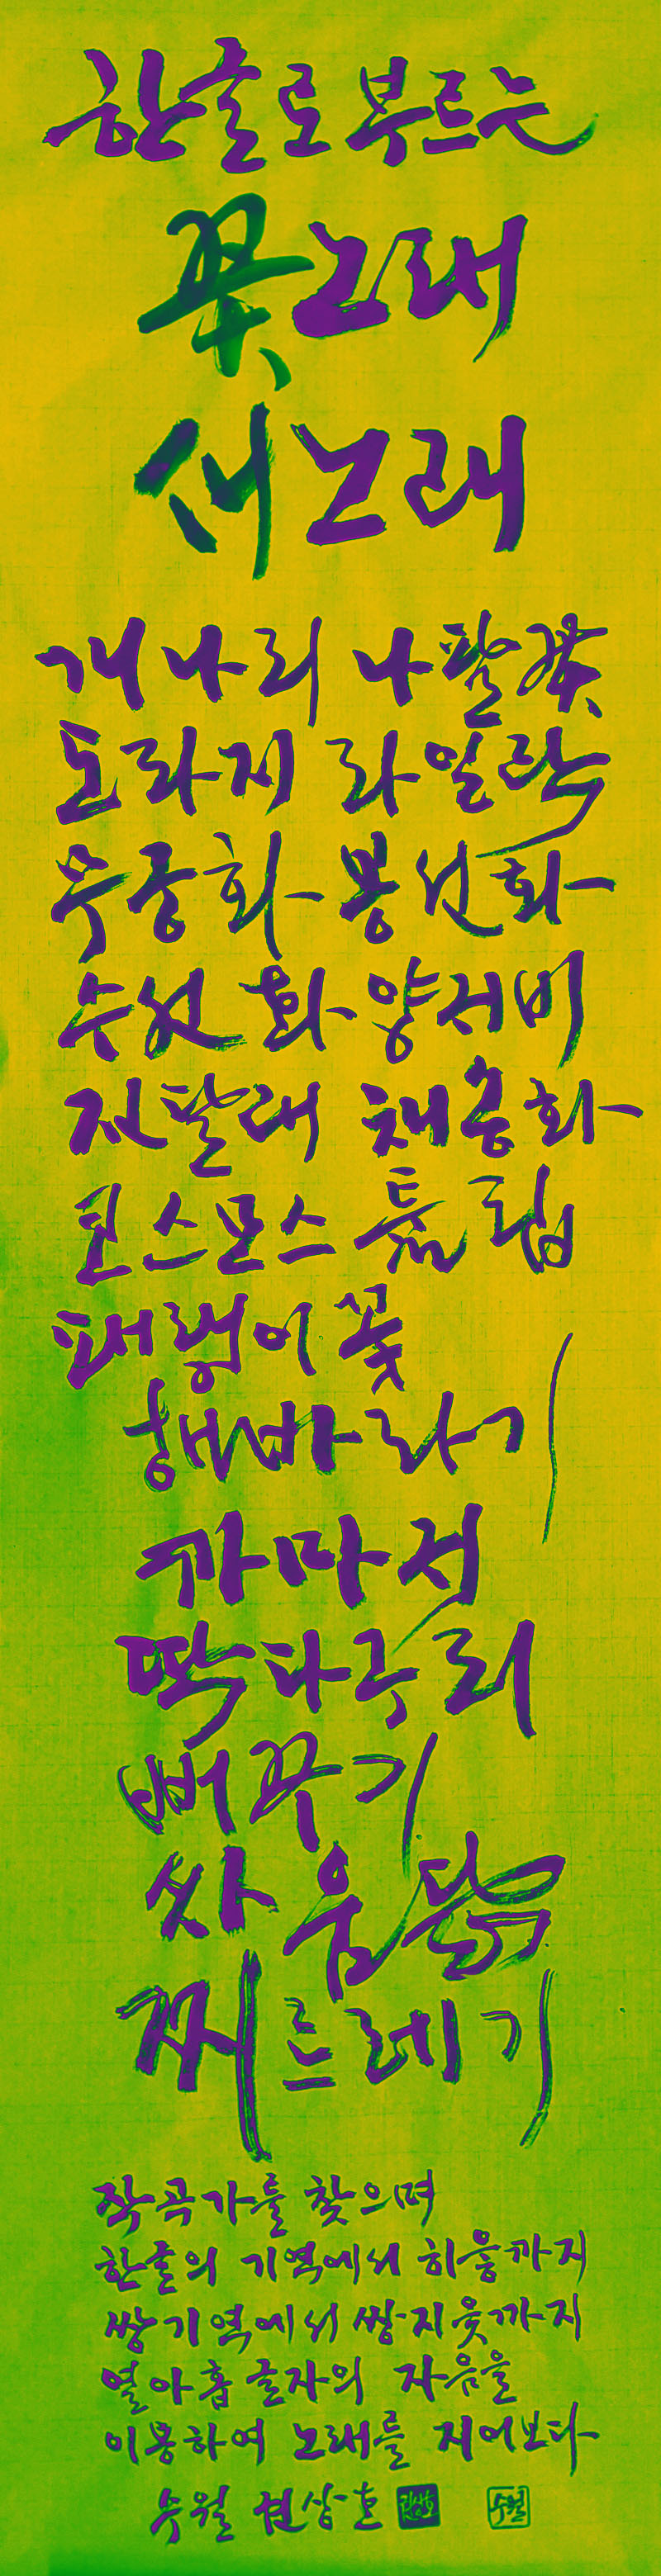 한글로 부르는
꽃노래
새노래
개나리 나팔꽃
도라지 라일락
무궁화 봉선화
수선화 양귀비
진달래 채송화
코스모스 튤립
패랭이꽃
해바라기
까마귀
딱다구리
뻐꾸기
싸움닭
찌르레기
작곡가를 찾으며
한글의 기역에서 히읗까지
쌍기역에서 쌍지읒까지
열아홉 글자의 자음을
이용하여 노래를 지어보다
수월 현상호
수월